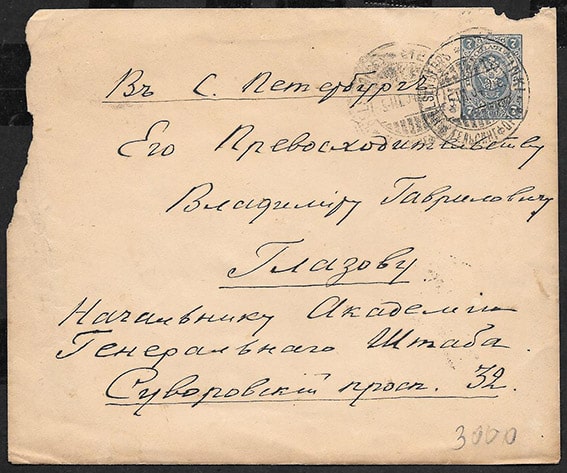 Въ С. Петербургъ
Его Превосходительству
Владиміру Гавриловичу
Глазову
Начальнику Академіи
Генеральнаго Штаба
Суворовскій просп. 32.
3000